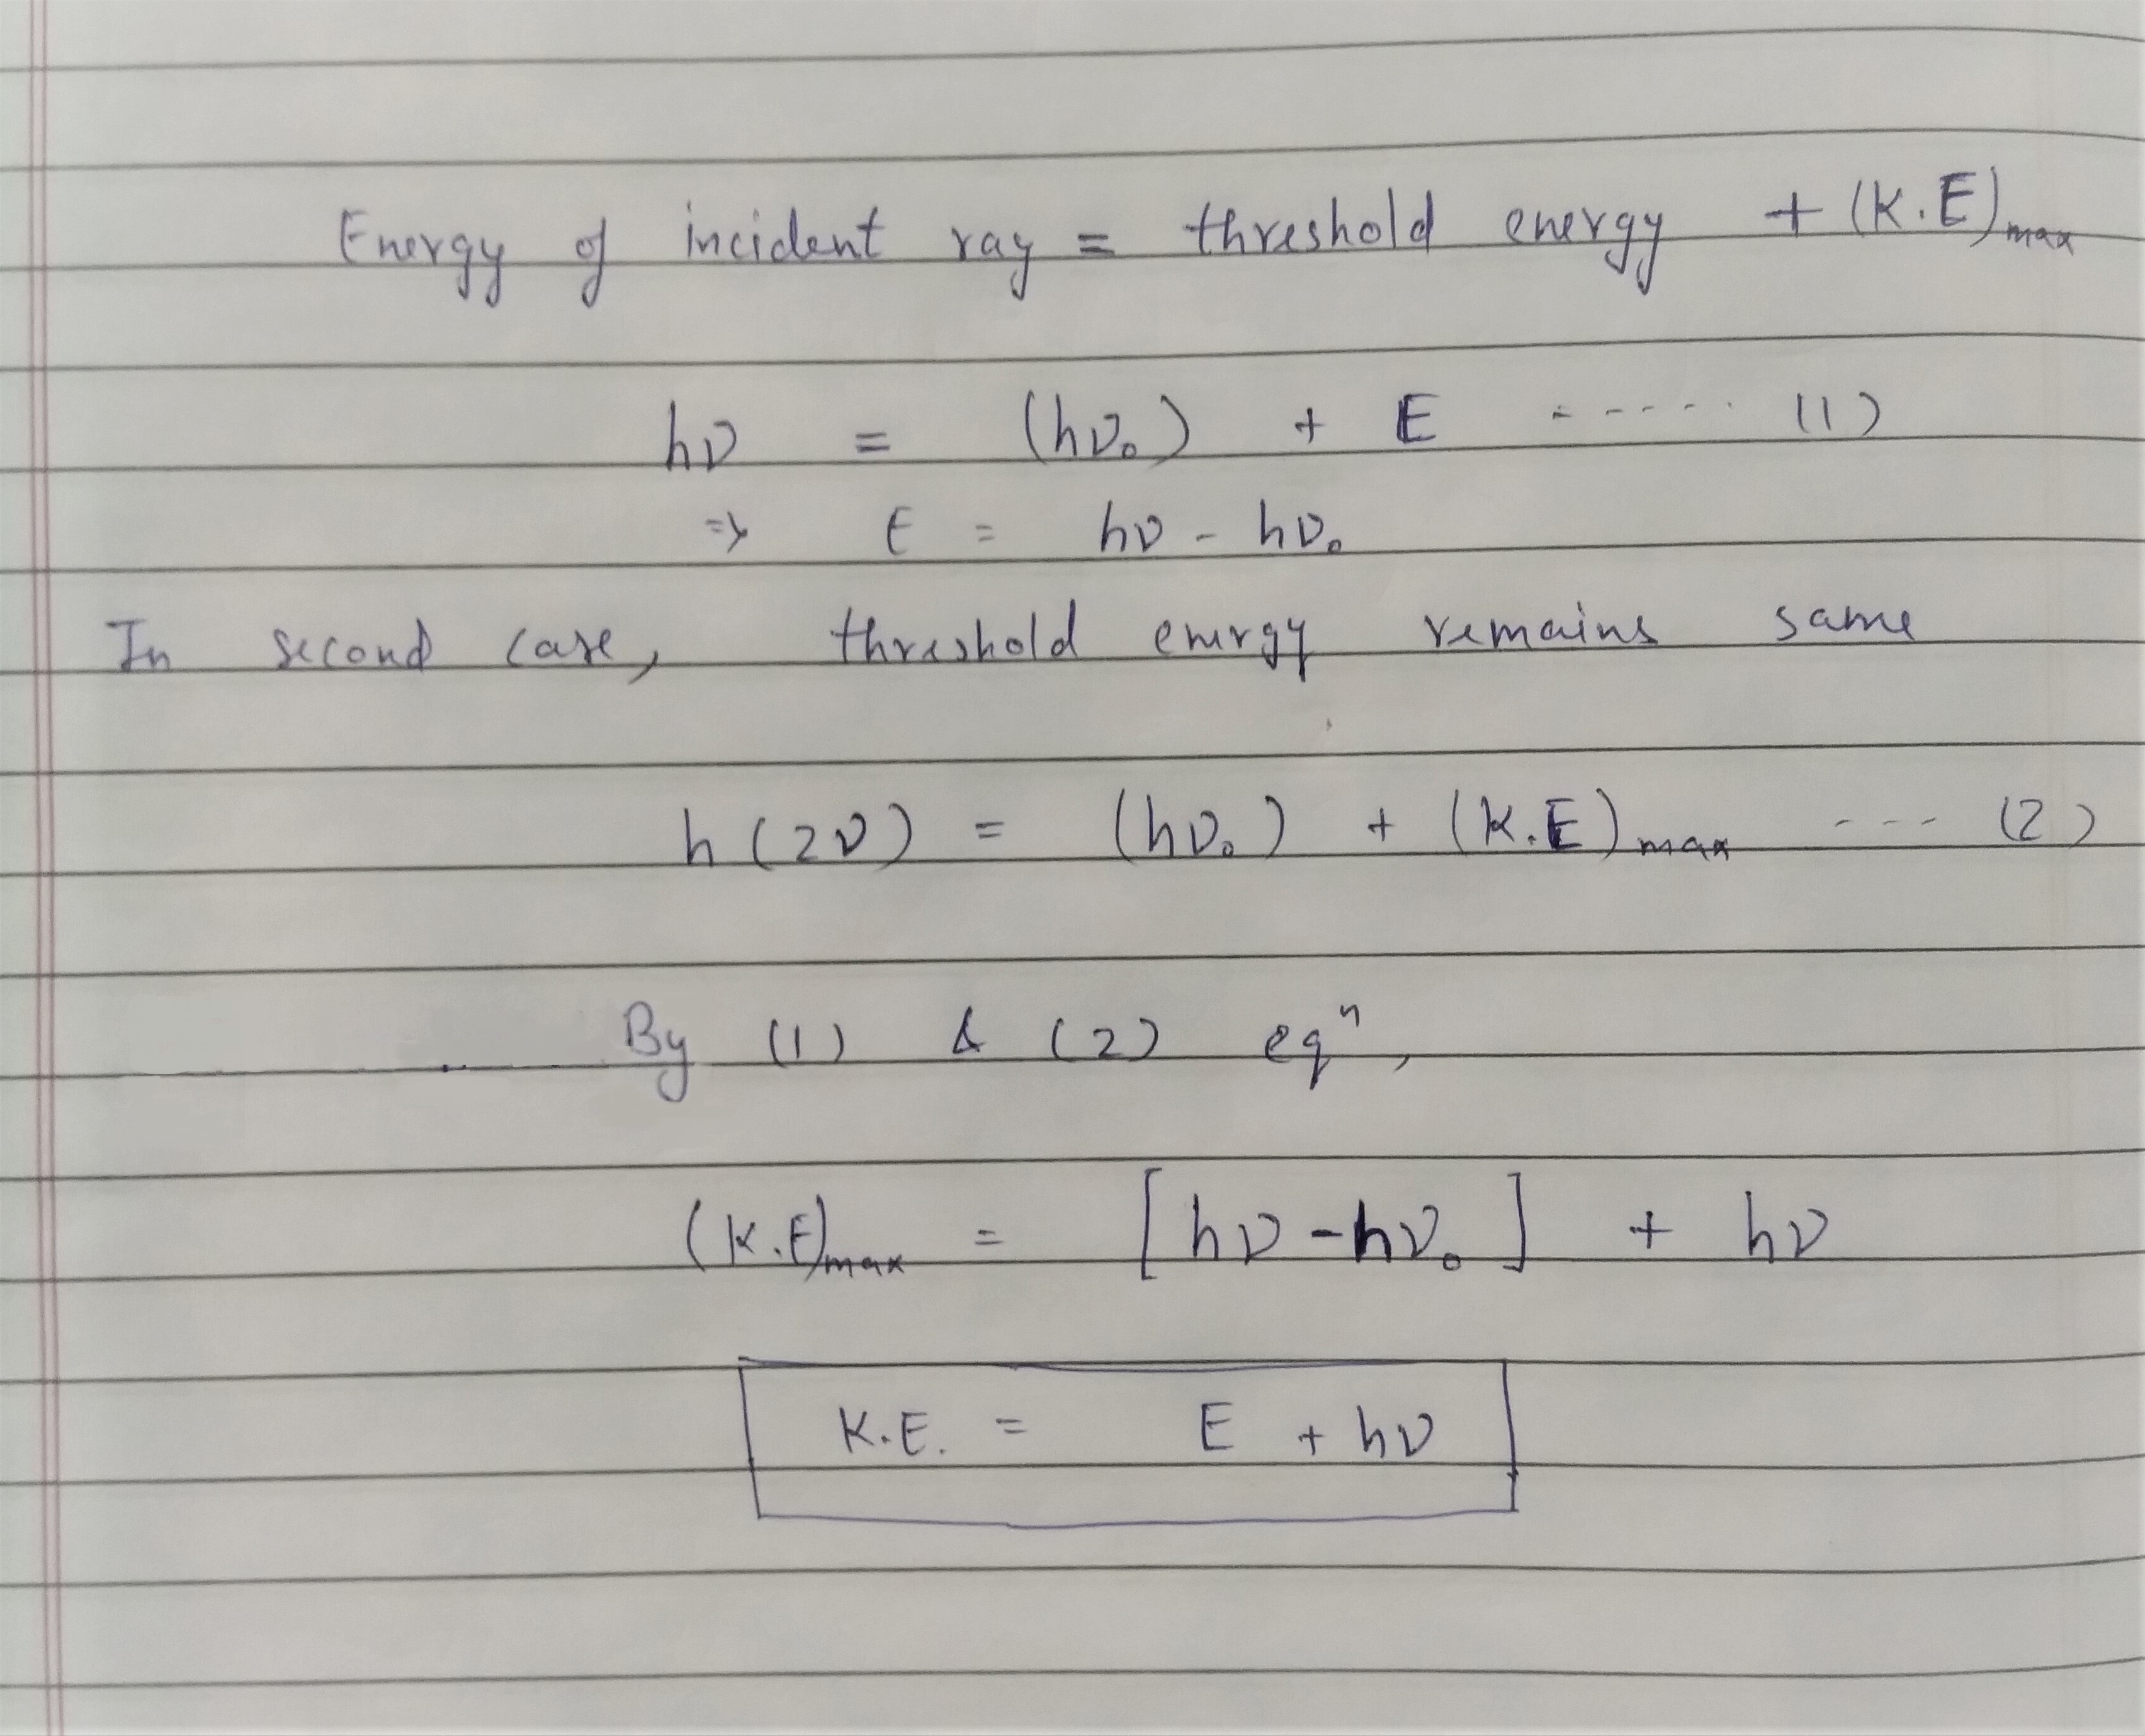 Energy of incident ray = threshold energy + (K.E)max
hν = (hν₀) + E ------ (1)
⇒ E = hν - hν₀
In second case, threshold energy remains same
h(2ν) = (hν₀) + (K.E)max --- (2)
By (1) & (2) eqⁿ,
(K.E)max = [hν - hν₀] + hν
K.E. = E + hν